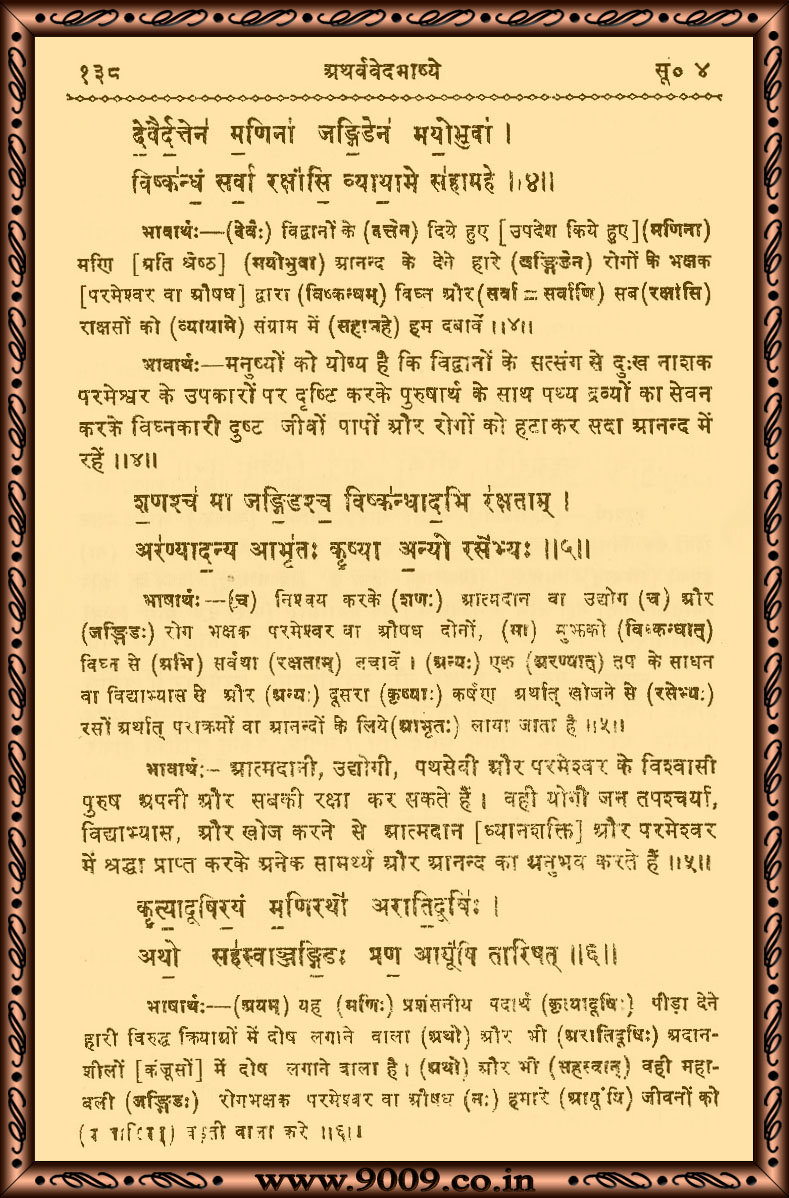 १३८ अथर्ववेदभाष्ये सू० ४
दे॒वैर्द॒त्तेन॑ म॒णिना॑ जङ्गि॒डेन॑ मयो॒भुवा॑ ।
विष्क॑न्धं॒ सर्वा॒ रक्षां॑सि व्याया॒मे स॑हामहे ॥४॥
भाषार्थः—(देवैः) विद्वानों के (दत्तेन) दिये हुए [उपदेश किये हुए](मणिना)
मणि [अति श्रेष्ठ] (मयोभुवा) आनन्द के देने हारे (जङ्गिडेन) रोगों के भक्षक
[परमेश्वर वा औषध] द्वारा (विष्कन्धम्) विघ्न और(सर्वा = सर्वाणि) सब(रक्षांसि)
राक्षसों को (व्यायामे) संग्राम में (सहामहे) हम दबावें ॥४॥
भावार्थः—मनुष्यों को योग्य है कि विद्वानों के सत्संग से दुःख नाशक
परमेश्वर के उपकारों पर दृष्टि करके पुरुषार्थ के साथ पथ्य द्रव्यों का सेवन
करके विघ्नकारी दुष्ट जीवों पापों और रोगों को हटाकर सदा आनन्द में
रहें ॥४॥
श॒णश्च॑ मा जङ्गि॒डश्च॒ विष्क॑न्धाद॒भि र॑क्षताम् ।
अर॑ण्याद॒न्य आभृ॑तः कृ॒ष्या अ॒न्यो रसे॑भ्यः ॥५॥
भाषार्थः—(च) निश्चय करके (शणः) आत्मदान वा उद्योग (च) और
(जङ्गिडः) रोग भक्षक परमेश्वर वा औषध दोनों, (मा) मुझको (विष्कन्धात्)
विघ्न से (अभि) सर्वथा (रक्षताम्) बचावें । (अन्यः) एक (अरण्यात्) तप के साधन
वा विद्याभ्यास से और (अन्यः) दूसरा (कृष्याः) कर्षण अर्थात् खोजने से (रसेभ्यः)
रसों अर्थात् पराक्रमों वा आनन्दों के लिये(आभृतः) लाया जाता है ॥५॥
भावार्थः– आत्मदानी, उद्योगी, पथसेवी और परमेश्वर के विश्वासी
पुरुष अपनी और सबकी रक्षा कर सकते हैं । वही योगी जन तपश्चर्या,
विद्याभ्यास, और खोज करने से आत्मदान [ध्यानशक्ति] और परमेश्वर
में श्रद्धा प्राप्त करके अनेक सामर्थ्य और आनन्द का अनुभव करते हैं ॥५॥
कृ॒त्या॒दूषि॑र॒यं म॒णिरथो॑ अराति॒दूषिः॑ ।
अथो॒ सह॑स्वाञ्जङ्गि॒डः प्रण॒ आयूं॑षि तारिषत् ॥६॥
भाषार्थः—(अयम्) यह (मणिः) प्रशंसनीय पदार्थ (कृत्यादूषिः) पीड़ा देने
हारी विरुद्ध क्रियाओं में दोष लगाने वाला (अथो) और भी (अरातिदूषिः) अदान-
शीलों [कंजूसों] में दोष लगाने वाला है। (अथो) और भी (सहस्वान्) वही महा-
बली (जङ्गिडः) रोगभक्षक परमेश्वर वा औषध (नः) हमारे (आयूंषि) जीवनों को
बढ़ती वाला करे ॥६॥
www.9009.co.in